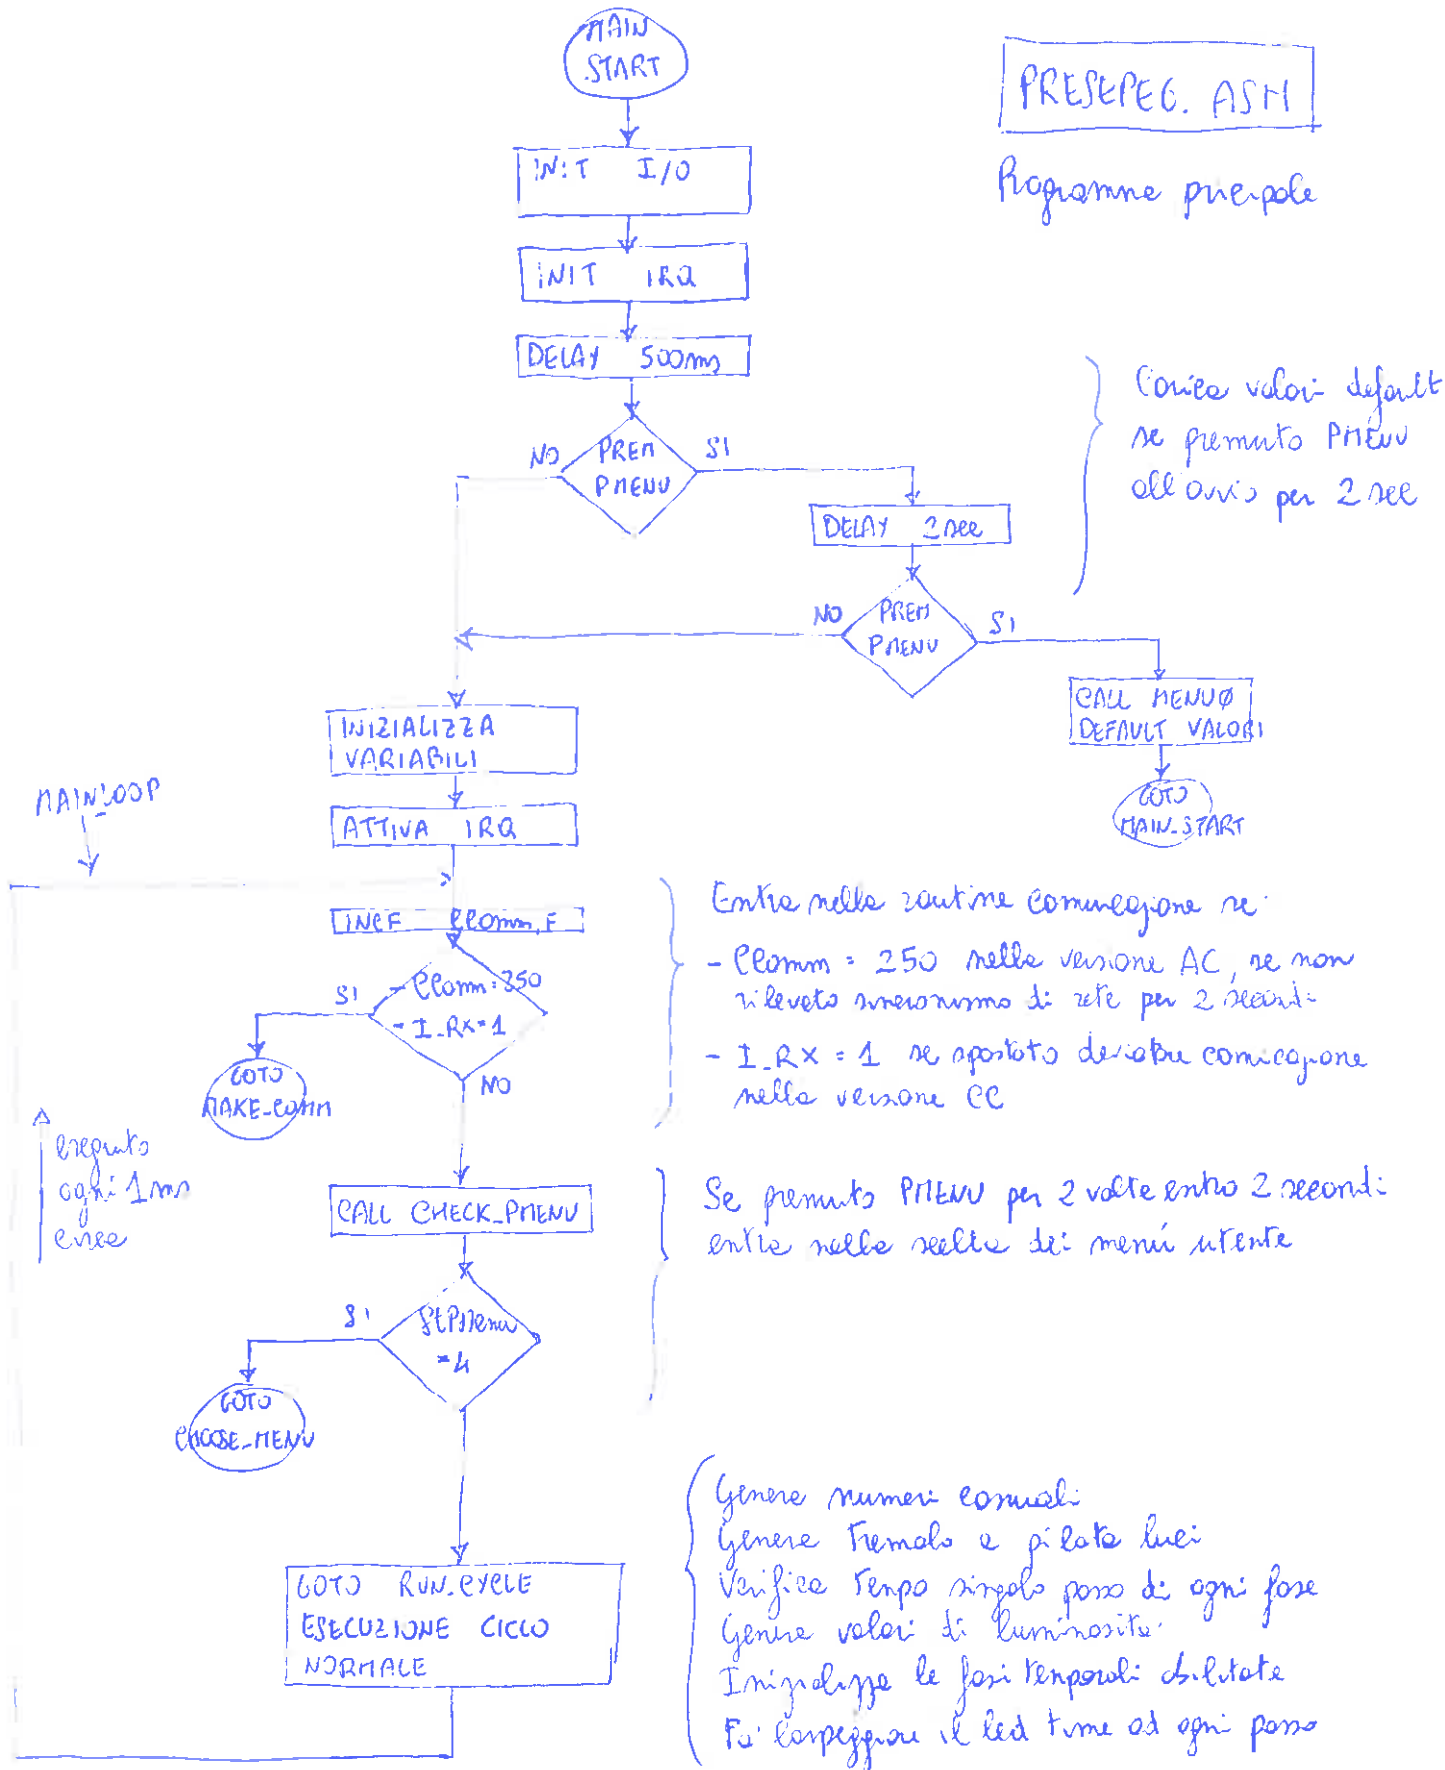 MAIN
START
PRESEPE6.ASM
Programma principale
INIT I/O
INIT IRQ
DELAY 500ms
PREM
PMENU
NO
SI
Carica valori default
se premuto PMENU
all'avvio per 2 sec
DELAY 2 sec
PREM
PMENU
NO
SI
CALL MENUØ
DEFAULT VALORI
GOTO
MAIN_START
INIZIALIZZA
VARIABILI
ATTIVA IRQ
MAINLOOP
INCF CComm,F
- CComm=250
- I_RX=1
SI
NO
GOTO
MAKE_COMM
Entra nella routine comunicazione se:
- CComm = 250 nella versione AC, se non
rilevato sincronismo di rete per 2 secondi
- I_RX = 1 se spostato deviatore comicazione
nella versione CC
eseguito
ogni 1ms
circa
CALL CHECK_PMENU
Se premuto PMENU per 2 volte entro 2 secondi
entra nella scelta dei menù utente
StPMenu
=4
SI
GOTO
CHOOSE_MENU
GOTO RUN_CYCLE
ESECUZIONE CICLO
NORMALE
Genera numeri casuali
Genera tremolo e pilota luci
Verifica tempo singolo passo di ogni fase
Genera valori di luminosita'
Inizializza le fasi temporali abilitate
Fa' lampeggiare il led time ad ogni passo